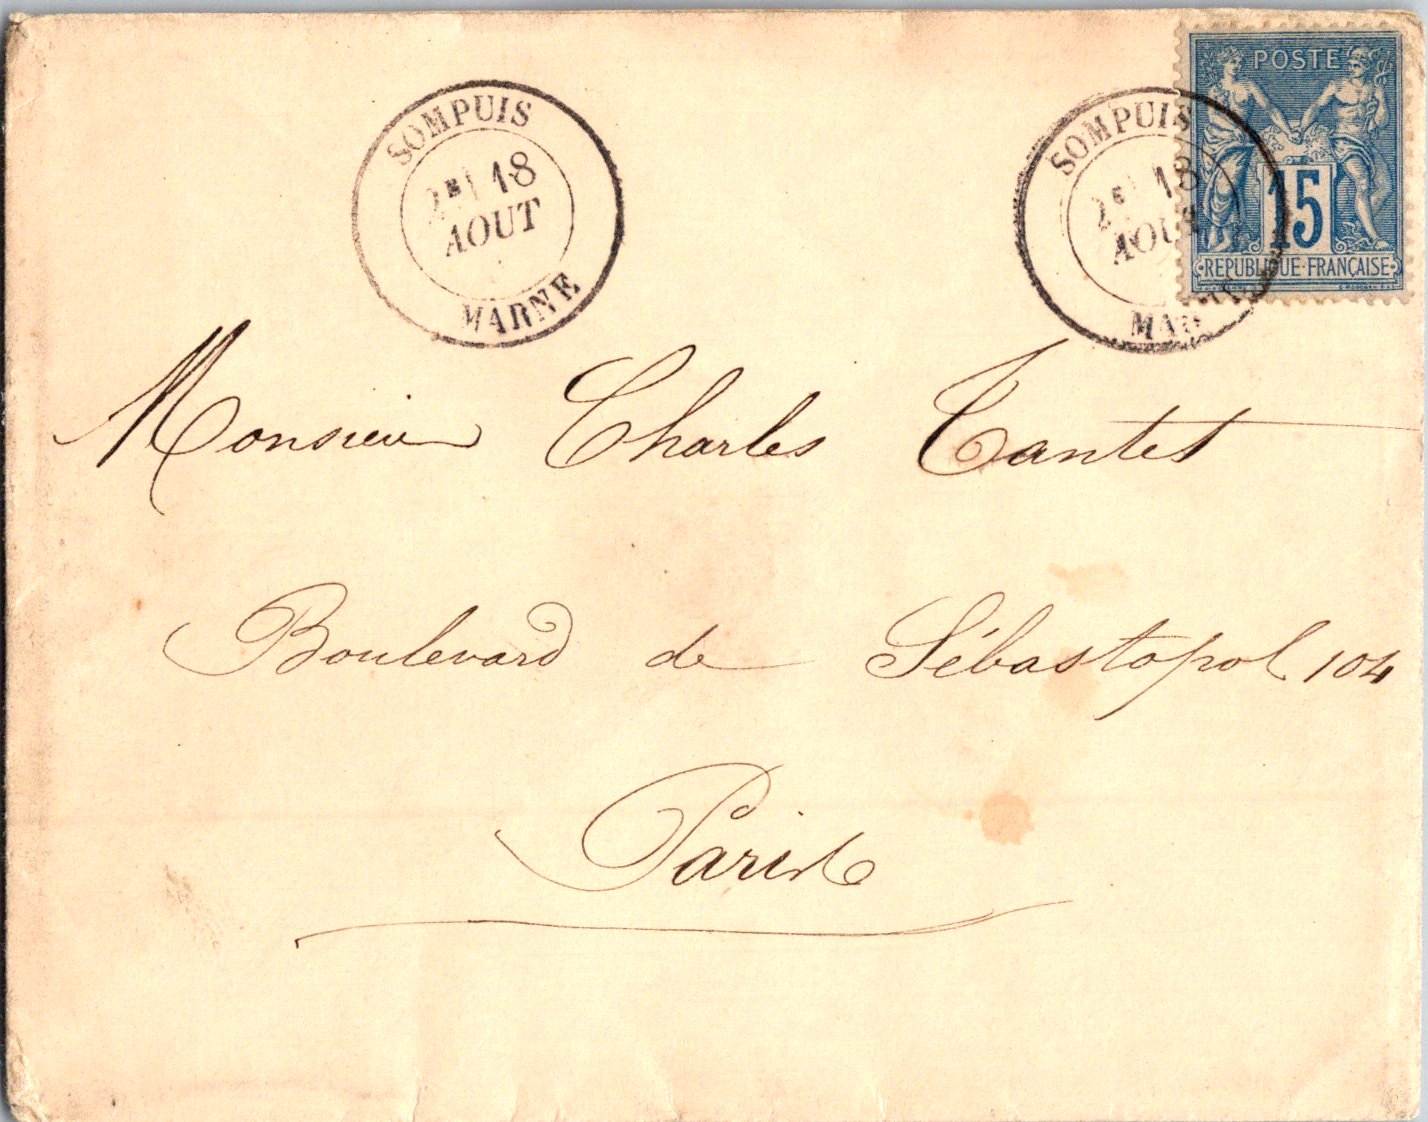 SOMPUIS
2E 18
AOUT
MARNE
SOMPUIS
2E 18
AOUT
MARNE
POSTE
15
REPUBLIQUE FRANÇAISE
Monsieur Charles Tantet
Boulevard de Sébastopol 104
Paris